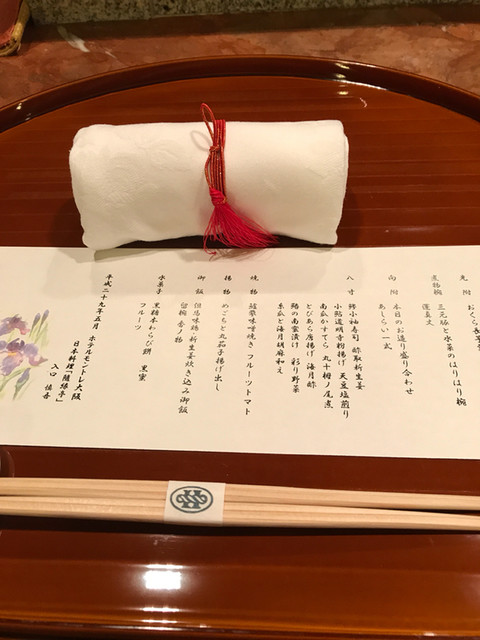 先附 おくら
煮物椀 三元豚と水菜のはりはり椀
蓮真丈
向附 本日のお造り盛り合わせ
あしらい一式
八寸 鯵小袖寿司 酢取新生姜
小鮎道明寺粉揚げ 天豆塩煎り
南瓜かすてら 丸十栂ノ尾煮
とびあら唐揚げ 海月酢
鶏の南蛮漬け 彩り野菜
赤瓜と海月胡麻和え
焼物 味噌焼き フルーツトマト
揚物 めごちと丸茄子揚げ出し
御飯 但馬味鶏・新生姜炊き込み御飯
留椀 香の物
水菓子 黒糖本わらび餅 黒蜜
フルーツ
平成二十九年五月 ホテルモントレ大阪
日本料理「隨縁亭」
入口